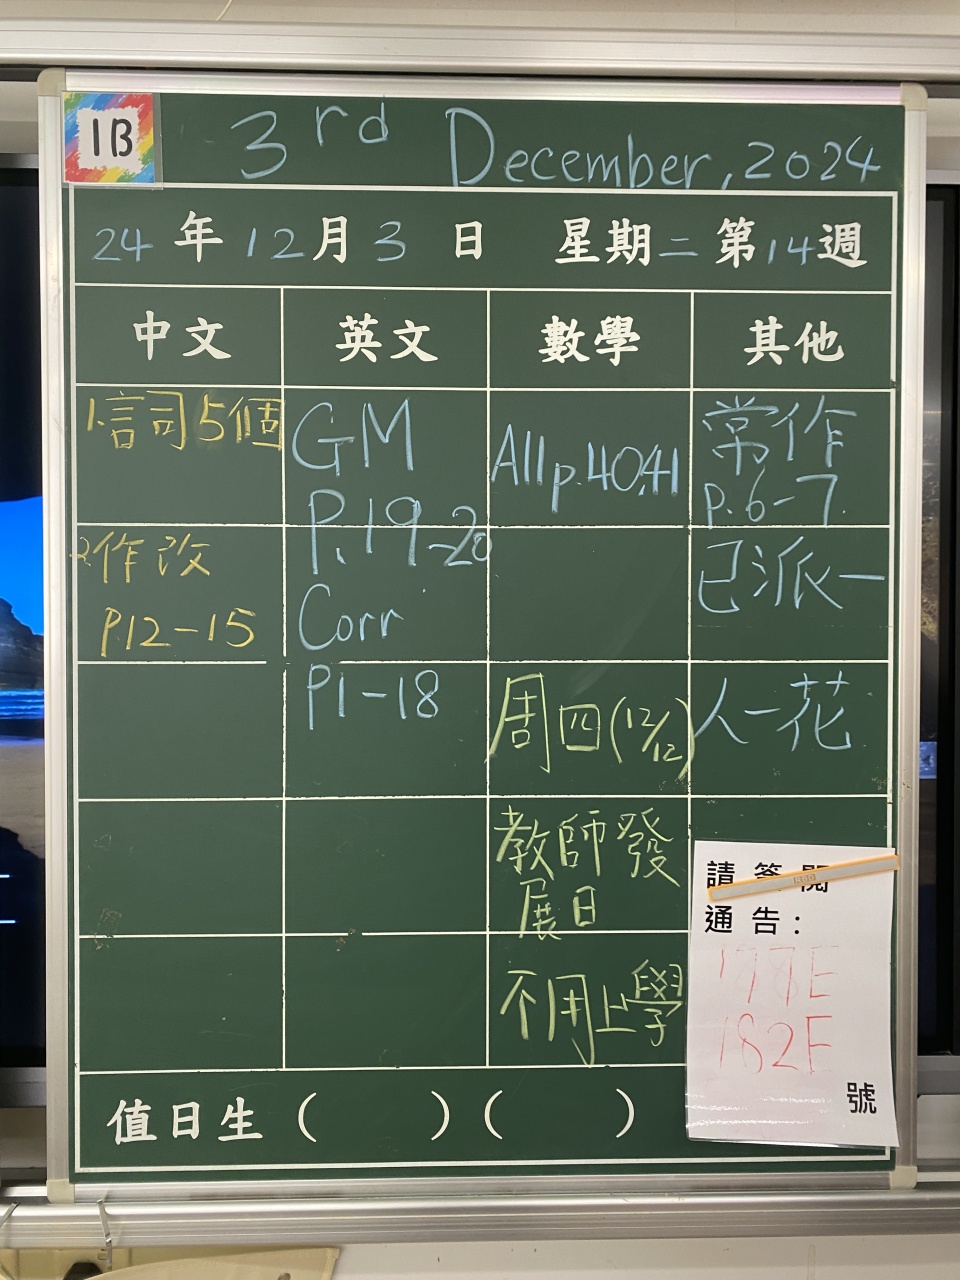 1B
3rd December, 2024
24年12月3日 星期二 第14週
中文 英文 數學 其他
1.言司5個
2.作改
P.12-15
GM
P.19-20
Corr
P1-18
A11 p.40,41
周四(12/12)
教師發
展日
不用上學
常作
P.6-7.
已派一
人一花
請簽閱
通告:
177E
182E
號
值日生 ( ) ( )